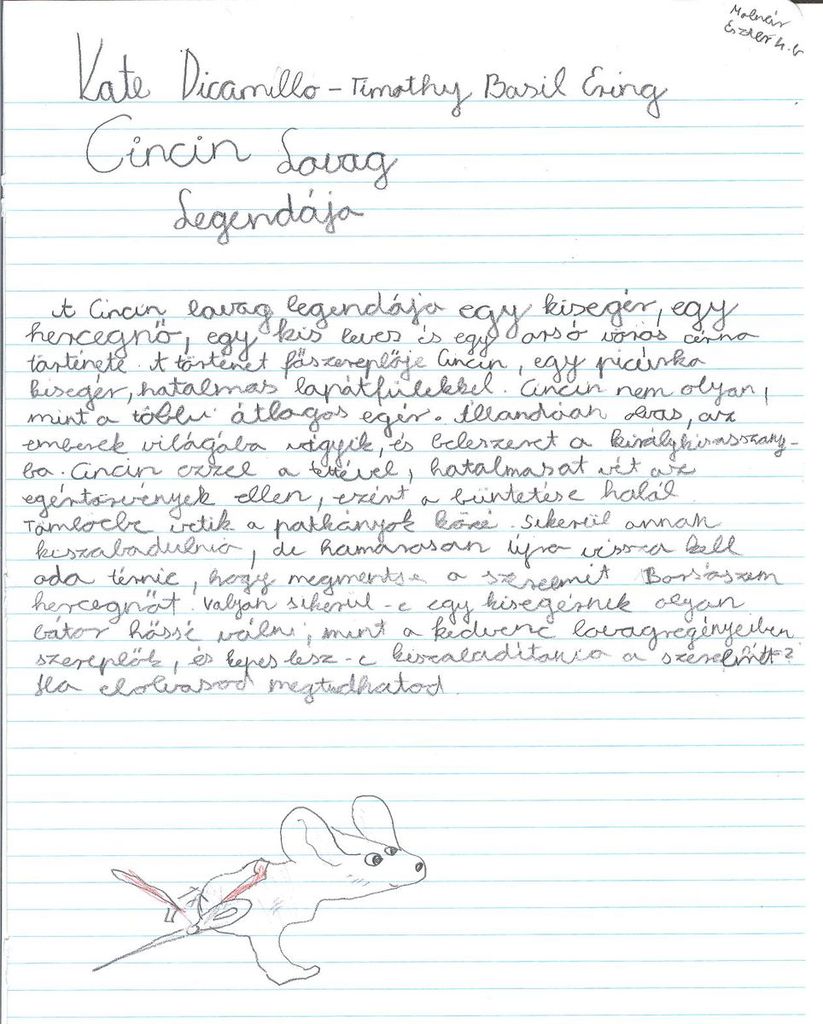 Molnár
Eszter 4.b
Kate Dicamillo - Timothy Basil Ering
Cincin Lovag
Legendája
A Cincin lovag legendája egy kisegér, egy
hercegnő, egy kis leves és egy orsó vörös cérna
története. A történet főszereplője Cincin, egy picurka
kisegér, hatalmas lapátfülekkel. Cincin nem olyan,
mint a többi átlagos egér. Állandóan olvas, az
emberek világába vágyik, és beleszeret a királykisasszony-
ba. Cincin ezzel a tettével, hatalmasat vét az
egértörvények ellen, ezért a büntetése halál.
Tömlöcbe vetik a patkányok közé. Sikerül annak
kiszabadulnia, de hamarosan újra vissza kell
oda térnie, hogy megmentse a szerelmét Borsószem
hercegnőt. Valyon sikerül-e egy kisegérnek olyan
bátor hőssé válni, mint a kedvenc lovagregényeiben
szereplők, és képes lesz-e kiszabadítania a szerelmét?
Ha elolvasod megtudhatod.